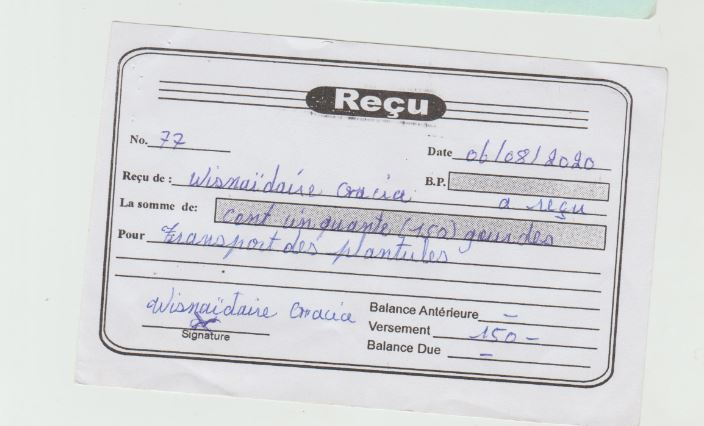 Reçu
No. 77
Date 06/08/2020
Reçu de : Wisnaïdaire Cracia a reçu
B.P.
La somme de: cent cinquante (150) gourdes
Pour Transport des plantules
Wisnaïdaire Cracia
Signature
Balance Antérieure -
Versement 150 -
Balance Due -